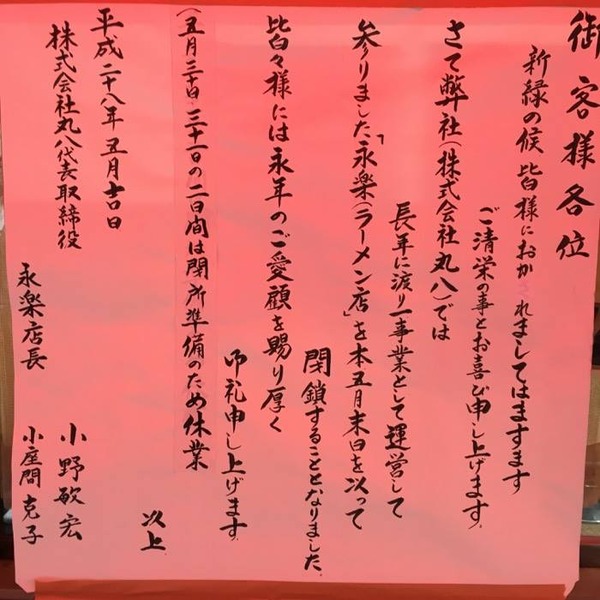 御客様各位
新緑の候 皆様におかれましてはますます
ご清栄の事とお喜び申し上げます。
さて弊社(株式会社丸八)では
長年に渡り一事業として運営して
参りました、「永楽(ラーメン店)」を本五月末日を以って
閉鎖することとなりました。
皆々様には永年のご愛顧を賜り厚く
御礼申し上げます。
(五月三十日・三十一日の二日間は閉所準備のため休業
以上
平成二十八年五月吉日
株式会社丸八代表取締役
小野敏宏
永楽店長
小座間克子